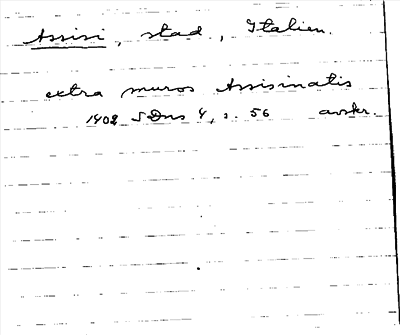 Assisi, stad, Italien.
extra muros Assisinatis
1402 SDns 4, s. 56 avskr.